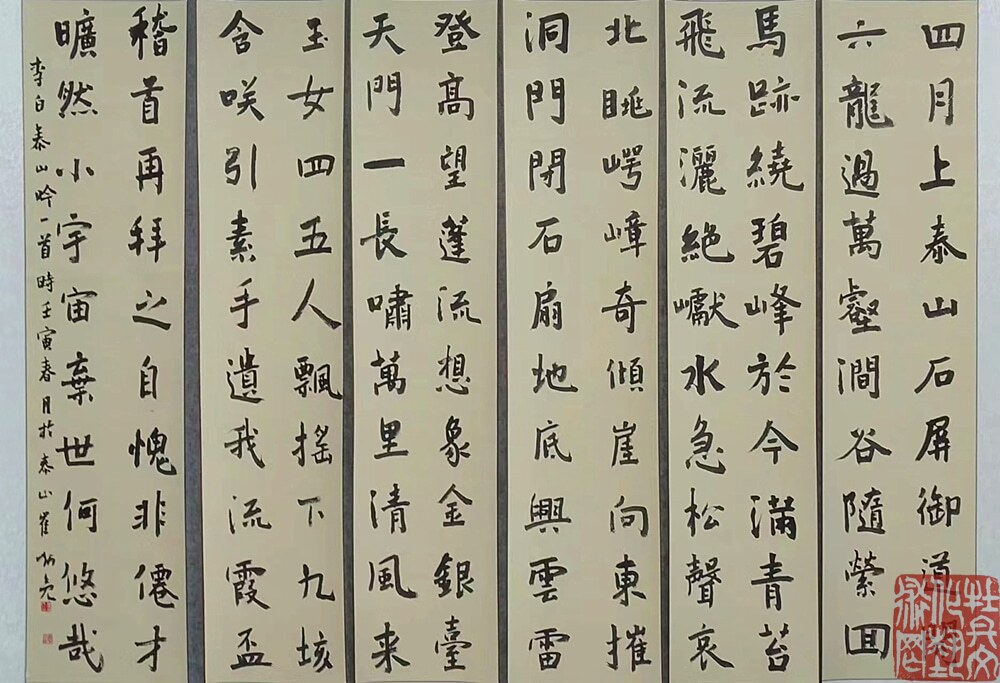 四月上泰山石屏御道開
六龍過萬壑澗谷隨縈回
馬跡繞碧峰於今滿青苔
飛流灑絕巘水急松聲哀
北眺崿嶂奇傾崖向東摧
洞門閉石扇地底興雲雷
登高望蓬流想象金銀臺
天門一長嘯萬里清風来
玉女四五人飄摇下九垓
含咲引素手遺我流霞盃
稽首再拜之自愧非僊才
曠然小宇宙棄世何悠哉
李白泰山吟一首時壬寅春月於泰山崔